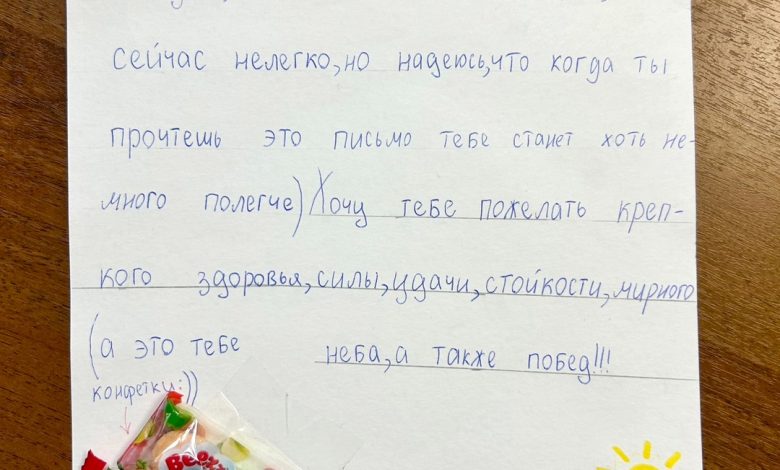 сейчас нелегко, но надеюсь, что когда ты
прочтешь это письмо тебе станет хоть не-
много полегче) Хочу тебе пожелать креп-
кого здоровья, силы, удачи, стойкости, мирного
неба, а также побед!!!
(а это тебе
конфетки:))